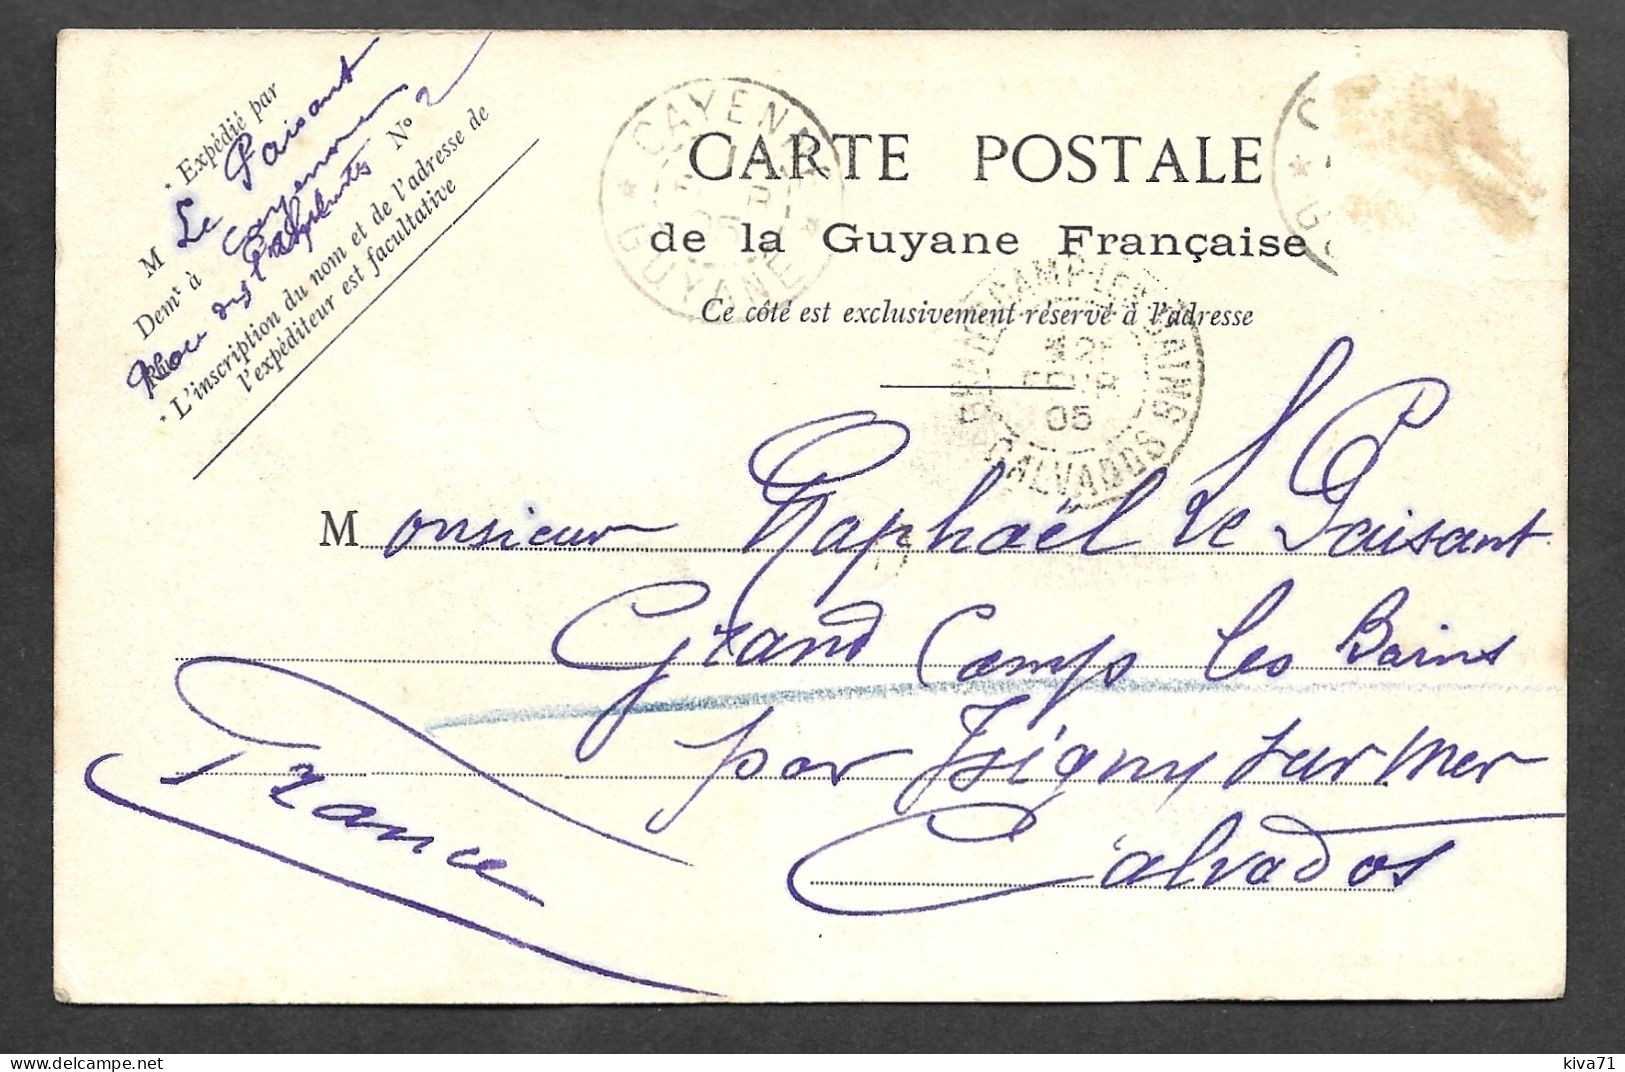 CARTE POSTALE
de la Guyane Française
Ce côté est exclusivement réservé à l'adresse
* Expédié par
M Le Paisant
Demt à Cayenne
Rue des No 2
* L'inscription du nom et de l'adresse de
l'expéditeur est facultative
CAYENNE
05
* GUYANE *
GRANDCAMP-LES-BAINS
05
CALVADOS
Monsieur Raphaël Le Paisant
Grand Camp les Bains
par Isigny sur mer
Calvados
France
kiva71